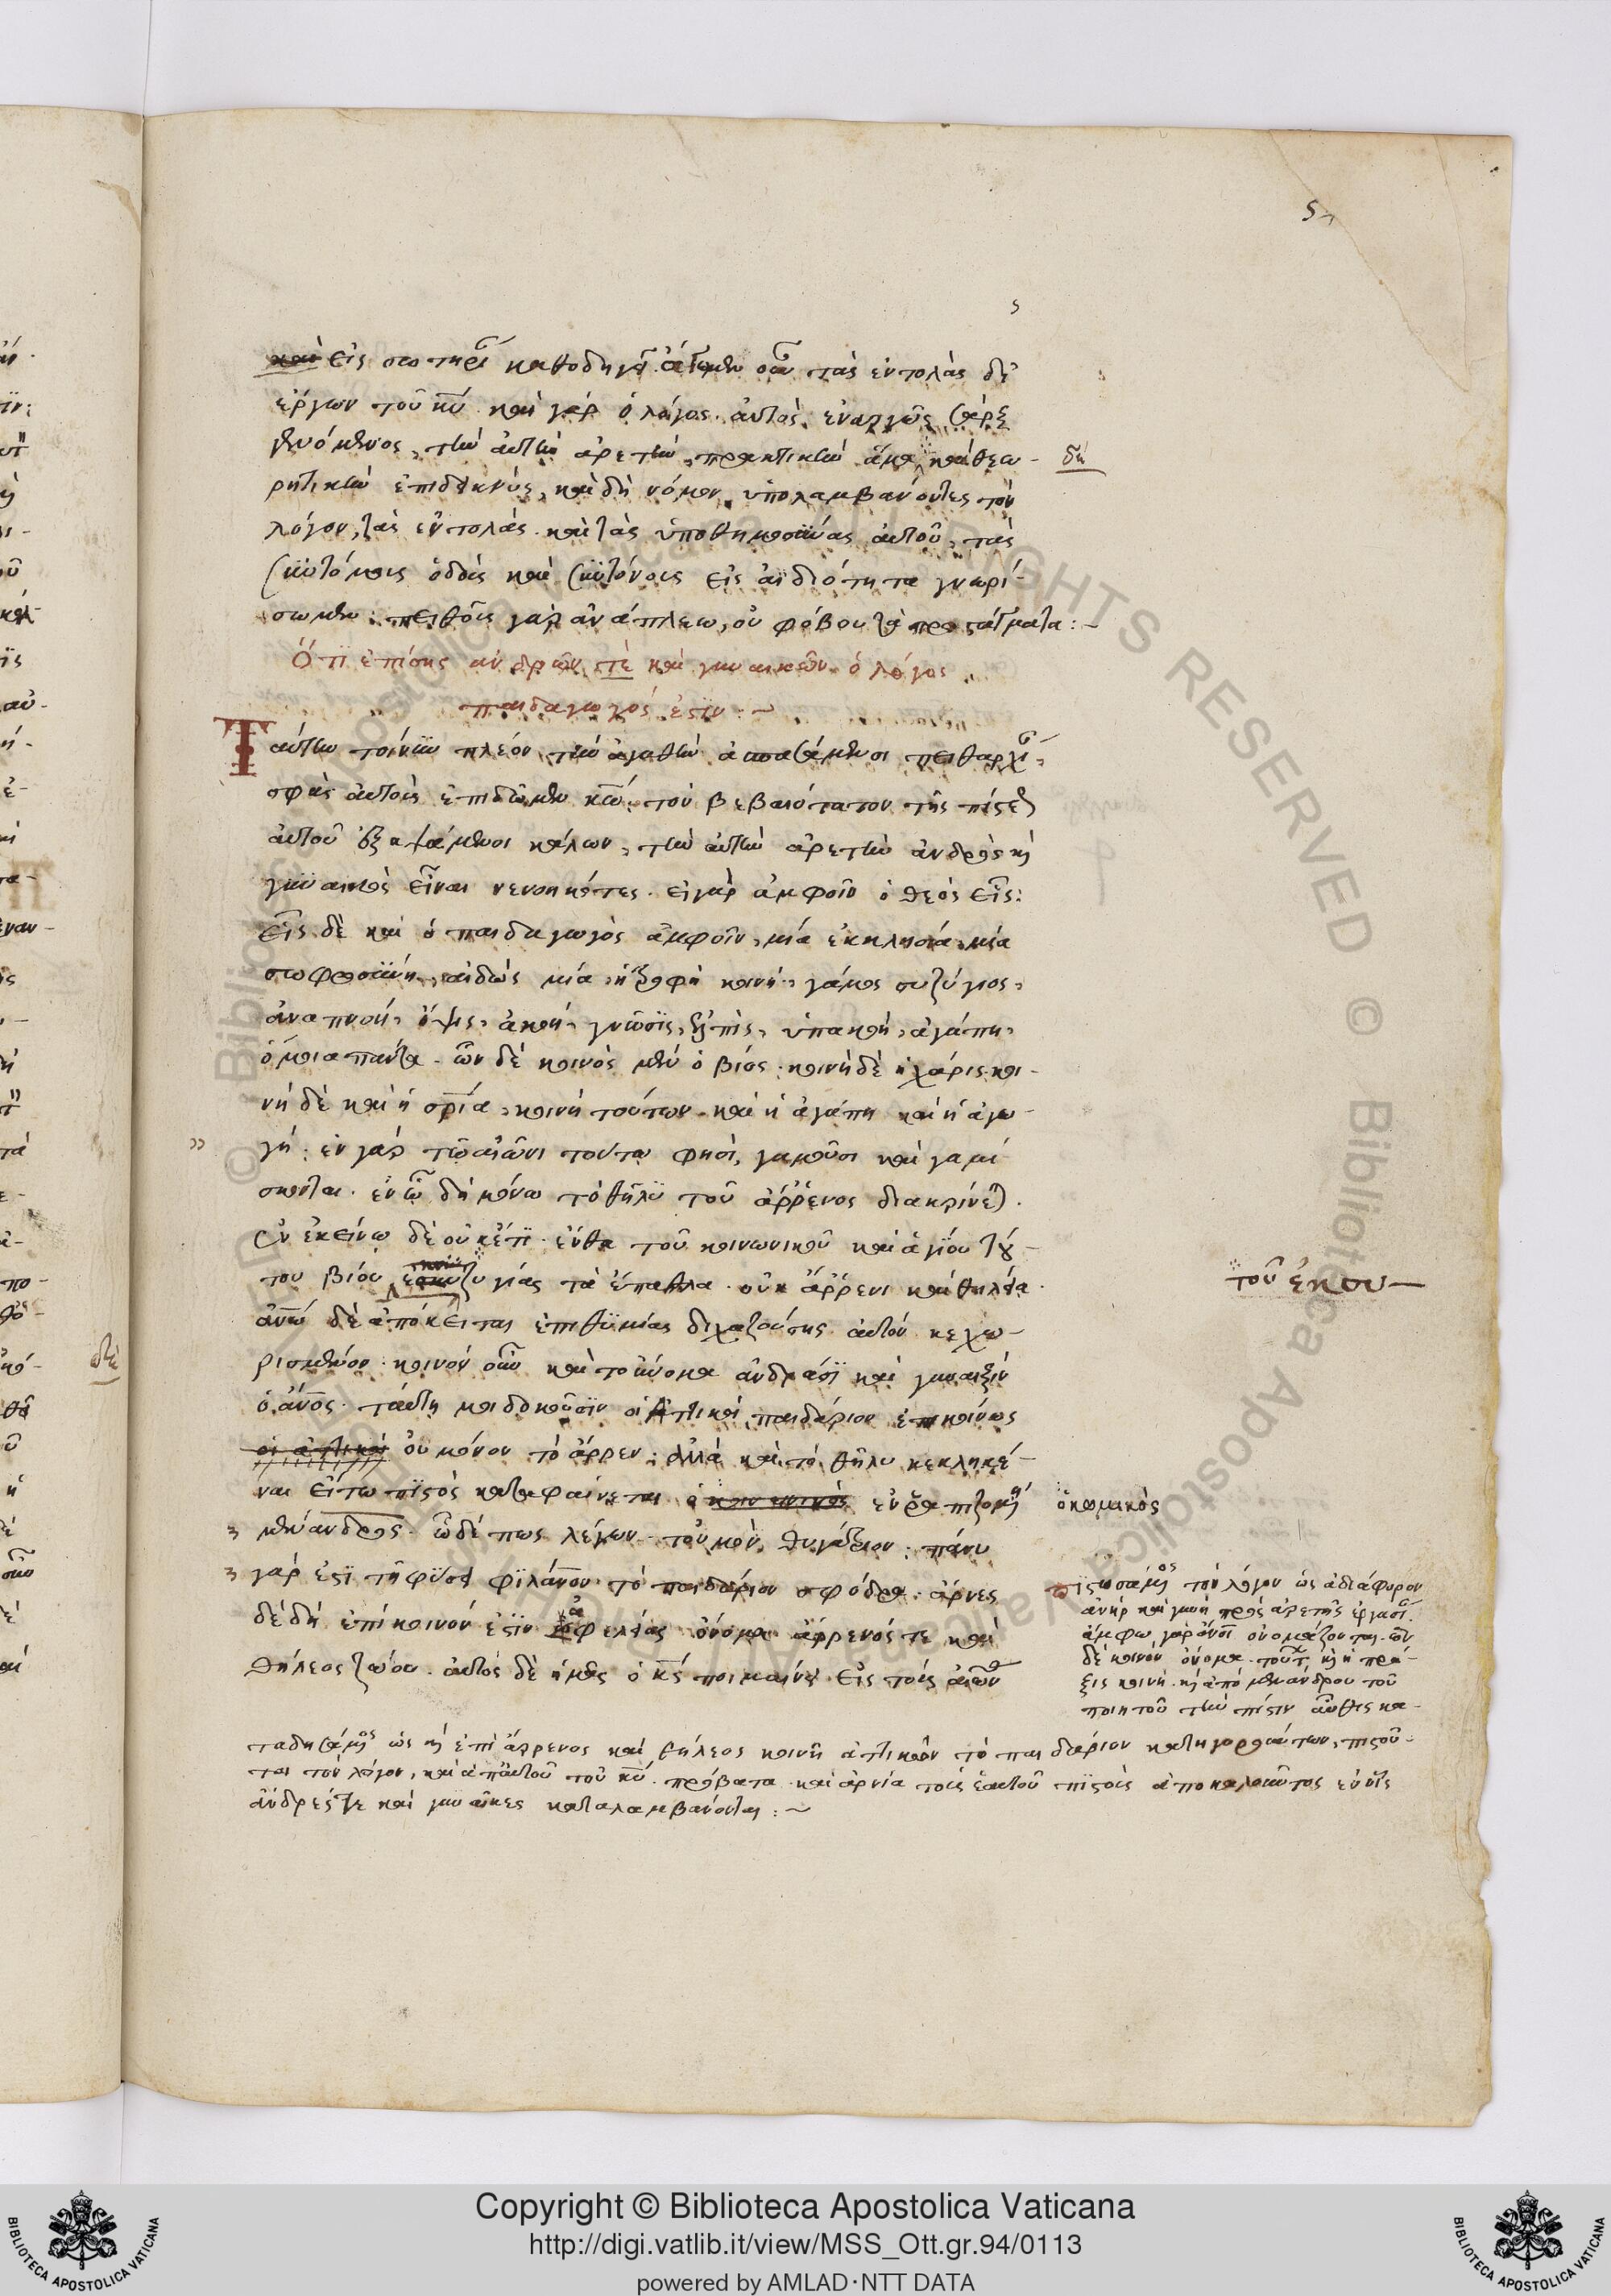 5
ς
καὶ εἰς σωτηρίαν καθοδηγεῖ. ἄγωμεν οὖν τὰς ἐντολὰς δι'
ἔργων τοῦ κυ. καὶ γὰρ ὁ λόγος αὐτὸς ἐναργῶς σὰρξ
γενόμενος, τὴν αὐτὴν ἀρετὴν πρακτικὴν ἅμα καὶ θεω-
δή
ρητικὴν ἐπιδεικνύς, καὶ δὴ νόμον ὑπολαμβάνοντες τὸν
λόγον, τὰς ἐντολὰς καὶ τὰς ὑποθημοσύνας αὐτοῦ, τὰς
συντόμους ὁδοὺς καὶ συντόνους εἰς ἀϊδιότητα γνωρί-
σωμεν. πειθοῦς γὰρ ἀνάπλεω, οὐ φόβου τὰ προστάγματα:-
Ὅτι ἐπίσης ἀνδρῶν τε καὶ γυναικῶν ὁ λόγος
παιδαγωγός ἐστιν:~
Ταύτην τοίνυν πλέον τὴν ἀγαθὴν ἀσπασάμενοι πειθαρχίαν,
σφᾶς αὐτοὺς ἐπιδῶμεν κω, τὸν βεβαιότατον τῆς πίστεως
αὐτοῦ ἐξαψάμενοι κάλων, τὴν αὐτὴν ἀρετὴν ἀνδρὸς καὶ
γυναικὸς εἶναι νενοηκότες. εἰ γὰρ ἀμφοῖν ὁ θεὸς εἷς:
εἷς δὲ καὶ ὁ παιδαγωγὸς ἀμφοῖν, μία ἐκκλησία, μία
σωφροσύνη, αἰδὼς μία, ἡ τροφὴ κοινή, γάμος συζύγιος,
ἀναπνοή, ὄψις, ἀκοή, γνῶσις, ἐλπίς, ὑπακοή, ἀγάπη,
ὅμοια πάντα. ὧν δὲ κοινὸς μὲν ὁ βίος, κοινὴ δὲ ἡ χάρις, κοι-
νὴ δὲ καὶ ἡ σρία, κοινὴ τούτων καὶ ἡ ἀγάπη καὶ ἡ ἀγω-
γή. ἐν γὰρ τῷ αἰῶνι τούτω φησί, γαμοῦσι καὶ γαμί-
σκονται. ἐν ᾧ δὴ μόνω τὸ θῆλυ τοῦ ἄρρενος διακρίνεται.
ἐν ἐκείνω δὲ οὐκέτι. ἔνθα τοῦ κοινωνικοῦ καὶ ἁγίου τού-
του βίου ζυγίας τὰ ἔπαθλα. οὐκ ἄρρενι καὶ θηλεία.
τοῦ ἐκ συ-
ἀνω δὲ ἀπόκειται ἐπιθυμίας διχαζούσης αὐτὸν κεχω-
ρισμένον. κοινὸν οὖν καὶ τοὔνομα ἀνδράσι καὶ γυναιξὶν
ὁ ἄνος. ταύτη μοι δοκοῦσιν οἱ ἀττικοὶ παιδάριον ἐπικοίνως
οἱ ἀττικοὶ οὐ μόνον τὸ ἄρρεν, ἀλλὰ καὶ τὸ θῆλυ κεκληκέ-
ναι εἴ τω πιστὸς καταφαίνεται ὁ ἐν ῥαπιζομένη
ὁ κωμικὸς
μένανδρος. ὧδέ πως λέγων. τοὐμὸν θυγάτριον. πάνυ
γάρ ἐστι τῆ φύσει φιλάνον τὸ παιδάριον σφόδρα. ἄρνες
δὲ δὴ ἐπίκοινόν ἐστιν ἀφελείας ὄνομα ἄρρενός τε καὶ
θήλεος ζώου. αὐτὸς δὲ ἡμᾶς ὁ κς ποιμαίνει εἰς τοὺς αἰῶνας
πιστωσάμενος τὸν λόγον ὡς ἀδιάφορον
ἀνὴρ καὶ γυνὴ πρὸς ἀρετῆς ἐργασίαν.
ἄμφω γὰρ ἄνοι ὀνομάζονται. ὧν
δὲ κοινὸν ὄνομα τούτων καὶ ἡ πρᾶ-
ξις κοινή. καὶ ἀπὸ μενάνδρου τοῦ
ποιητοῦ τὴν πίστιν αὖθις κα-
ταδησάμενος ὡς καὶ ἐπὶ ἄρρενος καὶ θήλεος κοινῆ ἀττικῶν τὸ παιδάριον κατηγορούντων, πιστοῦ-
ται τὸν λόγον, καὶ ἀπ' αὐτοῦ τοῦ κυ. πρόβατα καὶ ἀρνία τοὺς ἑαυτοῦ πιστοὺς ἀποκαλοῦντος ἐν οἷς
ἄνδρές τε καὶ γυναῖκες καταλαμβάνονται:~
© Biblioteca Apostolica Vaticana ALL RIGHTS RESERVED
Copyright © Biblioteca Apostolica Vaticana
http://digi.vatlib.it/view/MSS_Ott.gr.94/0113
powered by AMLAD·NTT DATA
BIBLIOTECA APOSTOLICA VATICANA
BIBLIOTECA APOSTOLICA VATICANA